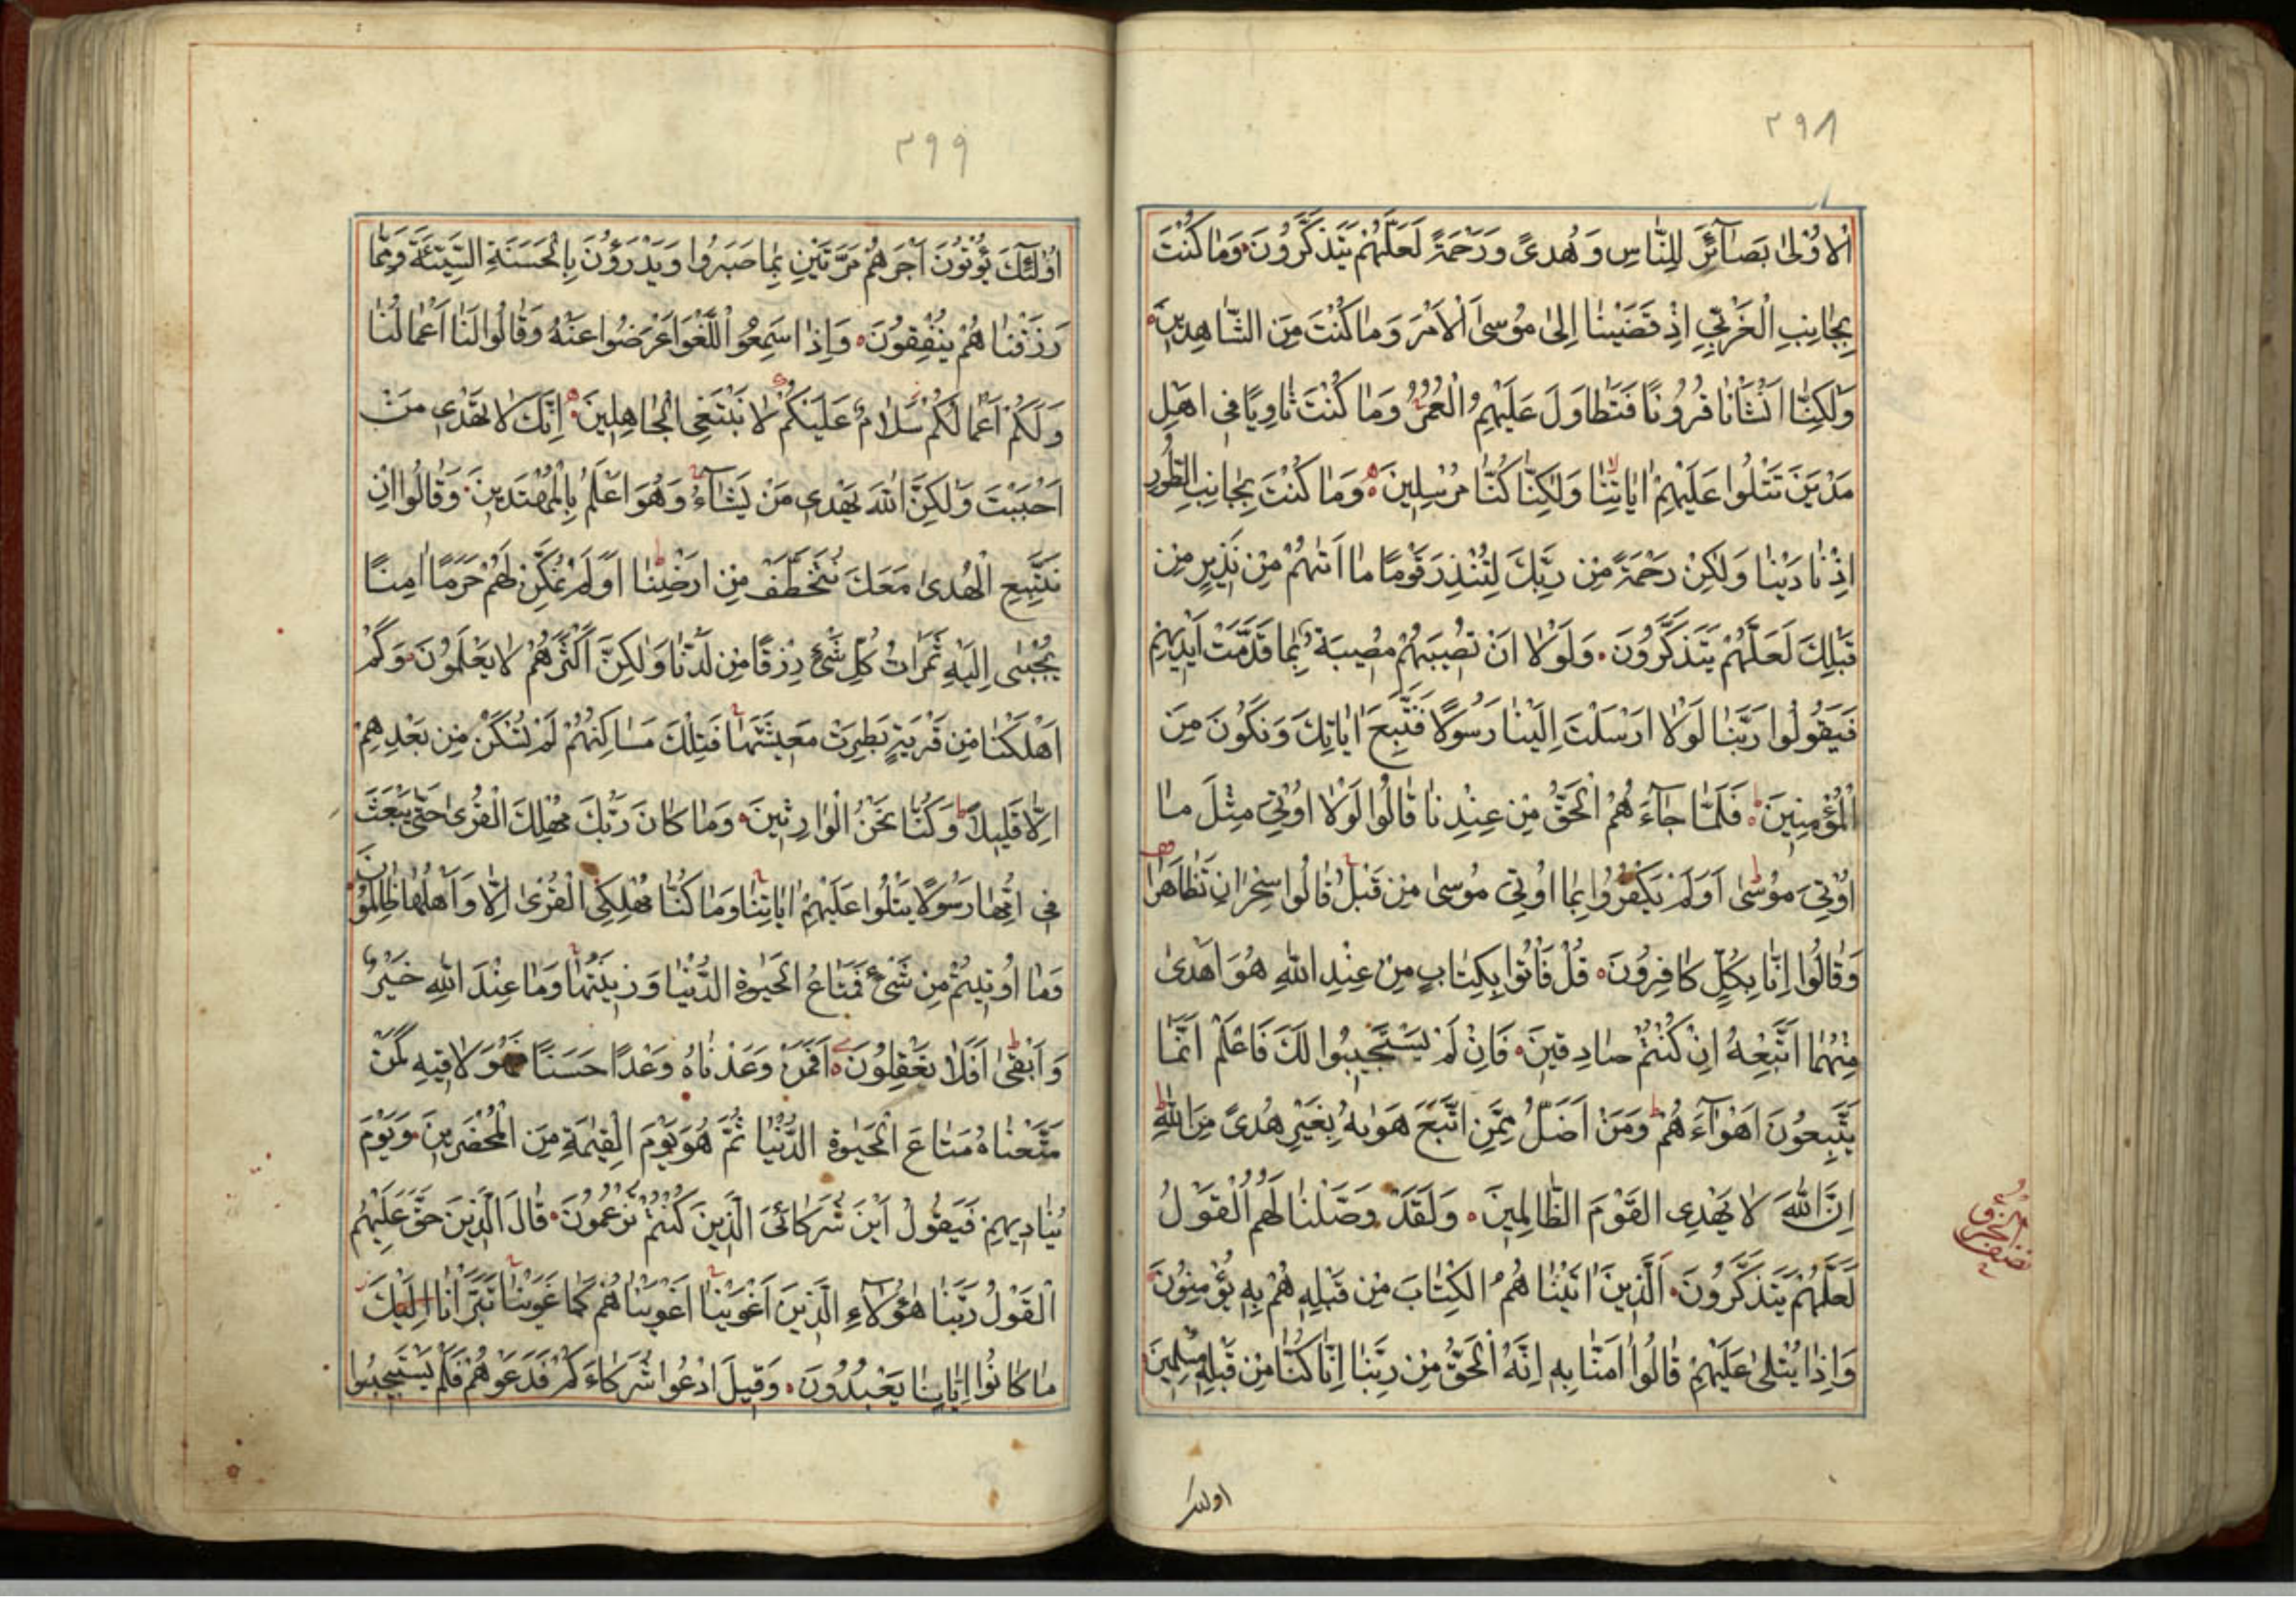 ٣٩٨
الْاُوْلىٰ بَصَآئِرَ لِلنّٰاسِ وَهُدىً وَرَحْمَةً لَعَلَّهُمْ يَتَذَكَّرُونَ وَمٰا كُنْتَ
بِجٰانِبِ الْغَرْبِيِّ اِذْ قَضَيْنٰا اِلىٰ مُوْسىَ الْاَمْرَ وَمٰا كُنْتَ مِنَ الشّٰاهِدِينَ
وَلٰكِنّٰا اَنْشَأْنٰا قُرُونًا فَتَطٰاوَلَ عَلَيْهِمُ الْعُمُرُ وَمٰا كُنْتَ ثٰاوِيًا فِي اَهْلِ
مَدْيَنَ تَتْلُوا عَلَيْهِمْ اٰيٰاتِنٰا وَلٰكِنّٰا كُنّٰا مُرْسِلِينَ وَمٰا كُنْتَ بِجٰانِبِ الطُّورِ
اِذْ نٰادَيْنٰا وَلٰكِنْ رَحْمَةً مِنْ رَبِّكَ لِتُنْذِرَ قَوْمًا مٰا اَتٰهُمْ مِنْ نَذِيرٍ مِنْ
قَبْلِكَ لَعَلَّهُمْ يَتَذَكَّرُونَ وَلَوْلٰا اَنْ تُصِيبَهُمْ مُصِيبَةٌ بِمٰا قَدَّمَتْ اَيْدِيهِمْ
فَيَقُولُوا رَبَّنٰا لَوْلٰا اَرْسَلْتَ اِلَيْنٰا رَسُولًا فَنَتَّبِعَ اٰيٰاتِكَ وَنَكُونَ مِنَ
الْمُؤْمِنِينَ فَلَمّٰا جٰآءَهُمُ الْحَقُّ مِنْ عِنْدِنٰا قٰالُوا لَوْلٰا اُوتِيَ مِثْلَ مٰا
اُوْتِيَ مُوْسىٰ اَوَلَمْ يَكْفُرُوا بِمٰا اُوتِيَ مُوسىٰ مِنْ قَبْلُ قٰالُوا سِحْرٰانِ تَظٰاهَرٰا
وَقٰالُوا اِنّٰا بِكُلٍّ كٰافِرُونَ قُلْ فَأْتُوا بِكِتٰابٍ مِنْ عِنْدِ اللّٰهِ هُوَ اَهْدىٰ
مِنْهُمٰا اَتَّبِعْهُ اِنْ كُنْتُمْ صٰادِقِينَ فَاِنْ لَمْ يَسْتَجِيبُوا لَكَ فَاعْلَمْ اَنَّمٰا
يَتَّبِعُونَ اَهْوٰآءَهُمْ وَمَنْ اَضَلُّ مِمَّنِ اتَّبَعَ هَوٰيهُ بِغَيْرِ هُدىً مِنَ اللّٰهِ
اِنَّ اللّٰهَ لٰا يَهْدِى الْقَوْمَ الظّٰالِمِينَ وَلَقَدْ وَصَّلْنٰا لَهُمُ الْقَوْلَ
لَعَلَّهُمْ يَتَذَكَّرُونَ اَلَّذِينَ اٰتَيْنٰا هُمُ الْكِتٰابَ مِنْ قَبْلِهِ هُمْ بِهِ يُؤْمِنُونَ
وَاِذٰا يُتْلىٰ عَلَيْهِمْ قٰالُوا اٰمَنّٰا بِهِ اِنَّهُ الْحَقُّ مِنْ رَبِّنٰا اِنّٰا كُنّٰا مِنْ قَبْلِهِ مُسْلِمِينَ
اولئك
٣٩٩
اُولٰٓئِكَ يُؤْتُوْنَ اَجْرَهُمْ مَرَّتَيْنِ بِمٰا صَبَرُوا وَيَدْرَؤُنَ بِالْحَسَنَةِ السَّيِّئَةَ وَمِمّٰا
رَزَقْنٰا هُمْ يُنْفِقُونَ وَاِذٰا سَمِعُوا اللَّغْوَ اَعْرَضُوا عَنْهُ وَقٰالُوا لَنٰا اَعْمٰالُنٰا
وَلَكُمْ اَعْمٰالُكُمْ سَلٰامٌ عَلَيْكُمْ لٰا نَبْتَغِى الْجٰاهِلِينَ اِنَّكَ لٰا تَهْدِى مَنْ
اَحْبَبْتَ وَلٰكِنَّ اللّٰهَ يَهْدِى مَنْ يَشٰآءُ وَهُوَ اَعْلَمُ بِالْمُهْتَدِينَ وَقٰالُوا اِنْ
نَتَّبِعِ الْهُدىٰ مَعَكَ نُتَخَطَّفْ مِنْ اَرْضِنٰا اَوَلَمْ نُمَكِّنْ لَهُمْ حَرَمًا اٰمِنًا
يُجْبىٰ اِلَيْهِ ثَمَرٰاتُ كُلِّ شَيْءٍ رِزْقًا مِنْ لَدُنّٰا وَلٰكِنَّ اَكْثَرَهُمْ لٰا يَعْلَمُونَ وَكَمْ
اَهْلَكْنٰا مِنْ قَرْيَةٍ بَطِرَتْ مَعِيشَتَهٰا فَتِلْكَ مَسٰاكِنُهُمْ لَمْ تُسْكَنْ مِنْ بَعْدِهِمْ
اِلّٰا قَلِيلًا وَكُنّٰا نَحْنُ الْوٰارِثِينَ وَمٰا كٰانَ رَبُّكَ مُهْلِكَ الْقُرىٰ حَتّٰى يَبْعَثَ
فِي اُمِّهٰا رَسُولًا يَتْلُوا عَلَيْهِمْ اٰيٰاتِنٰا وَمٰا كُنّٰا مُهْلِكِى الْقُرىٰ اِلّٰا وَاَهْلُهٰا ظٰالِمُوْنَ
وَمٰا اُوتِيتُمْ مِنْ شَيْءٍ فَمَتٰاعُ الْحَيٰوةِ الدُّنْيٰا وَزِينَتُهٰا وَمٰا عِنْدَ اللّٰهِ خَيْرٌ
وَاَبْقىٰ اَفَلٰا يَعْقِلُونَ اَفَمَنْ وَعَدْنٰاهُ وَعْدًا حَسَنًا فَهُوَ لٰاقِيهِ كَمَنْ
مَتَّعْنٰاهُ مَتٰاعَ الْحَيٰوةِ الدُّنْيٰا ثُمَّ هُوَ يَوْمَ الْقِيٰمَةِ مِنَ الْمُحْضَرِينَ وَيَوْمَ
يُنٰادِيهِمْ فَيَقُولُ اَيْنَ شُرَكٰائِىَ الَّذِينَ كُنْتُمْ تَزْعُمُونَ قٰالَ الَّذِينَ حَقَّ عَلَيْهِمُ
الْقَوْلُ رَبَّنٰا هٰؤُلٰآءِ الَّذِينَ اَغْوَيْنٰا اَغْوَيْنٰا هُمْ كَمٰا غَوَيْنٰا تَبَرَّأْنٰا اِلَيْكَ
مٰا كٰانُوا اِيّٰانٰا يَعْبُدُونَ وَقِيلَ ادْعُوا شُرَكٰاءَكُمْ فَدَعَوْهُمْ فَلَمْ يَسْتَجِيبُوا